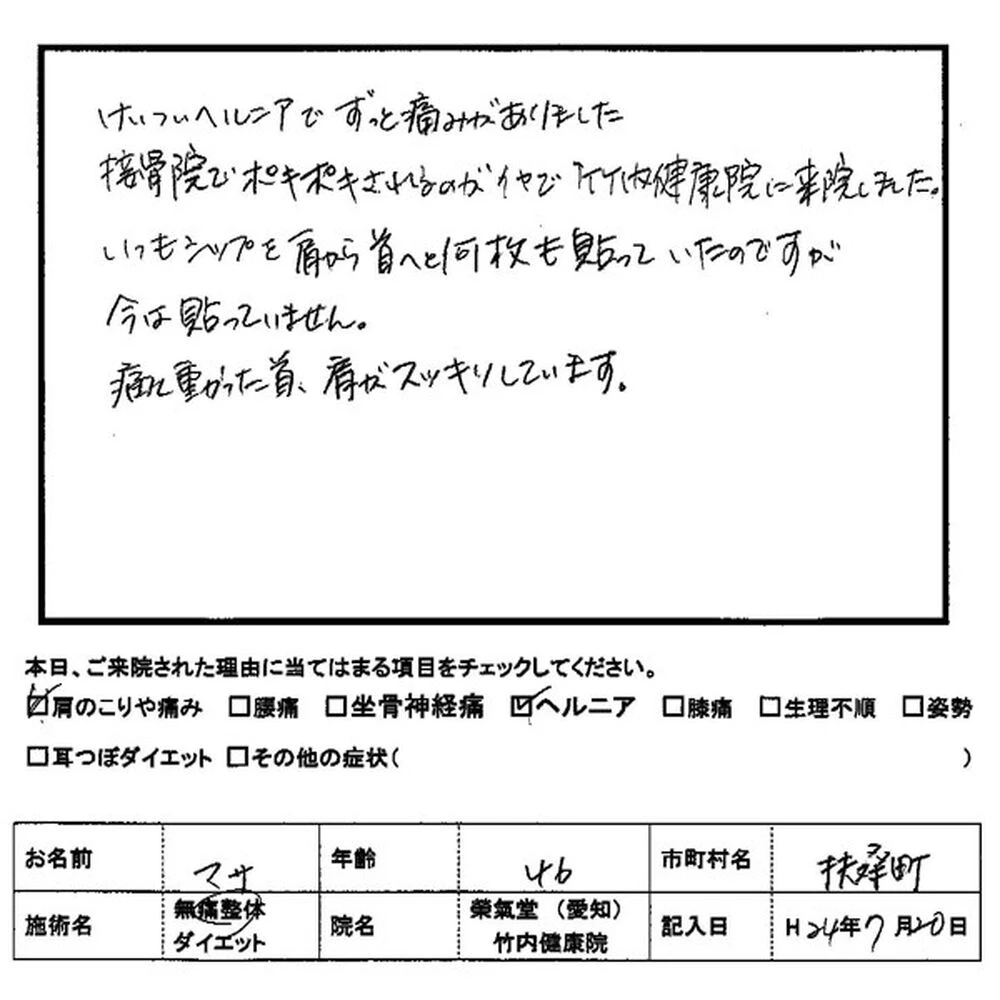 けいついヘルニアでずっと痛みがありました
接骨院でポキポキされるのがイヤで竹内健康院に来院しました。
いつもシップを肩から首へと何枚も貼っていたのですが
今は貼っていません。
痛く重かった首、肩がスッキリしています。
本日、ご来院された理由に当てはまる項目をチェックしてください。
☑肩のこりや痛み □腰痛 □坐骨神経痛 ☑ヘルニア □膝痛 □生理不順 □姿勢
□耳つぼダイエット □その他の症状( )
お名前 マサ 年齢 46 市町村名 扶桑町
施術名 無痛整体 ダイエット 院名 榮氣堂 (愛知) 竹内健康院 記入日 H24年7月20日